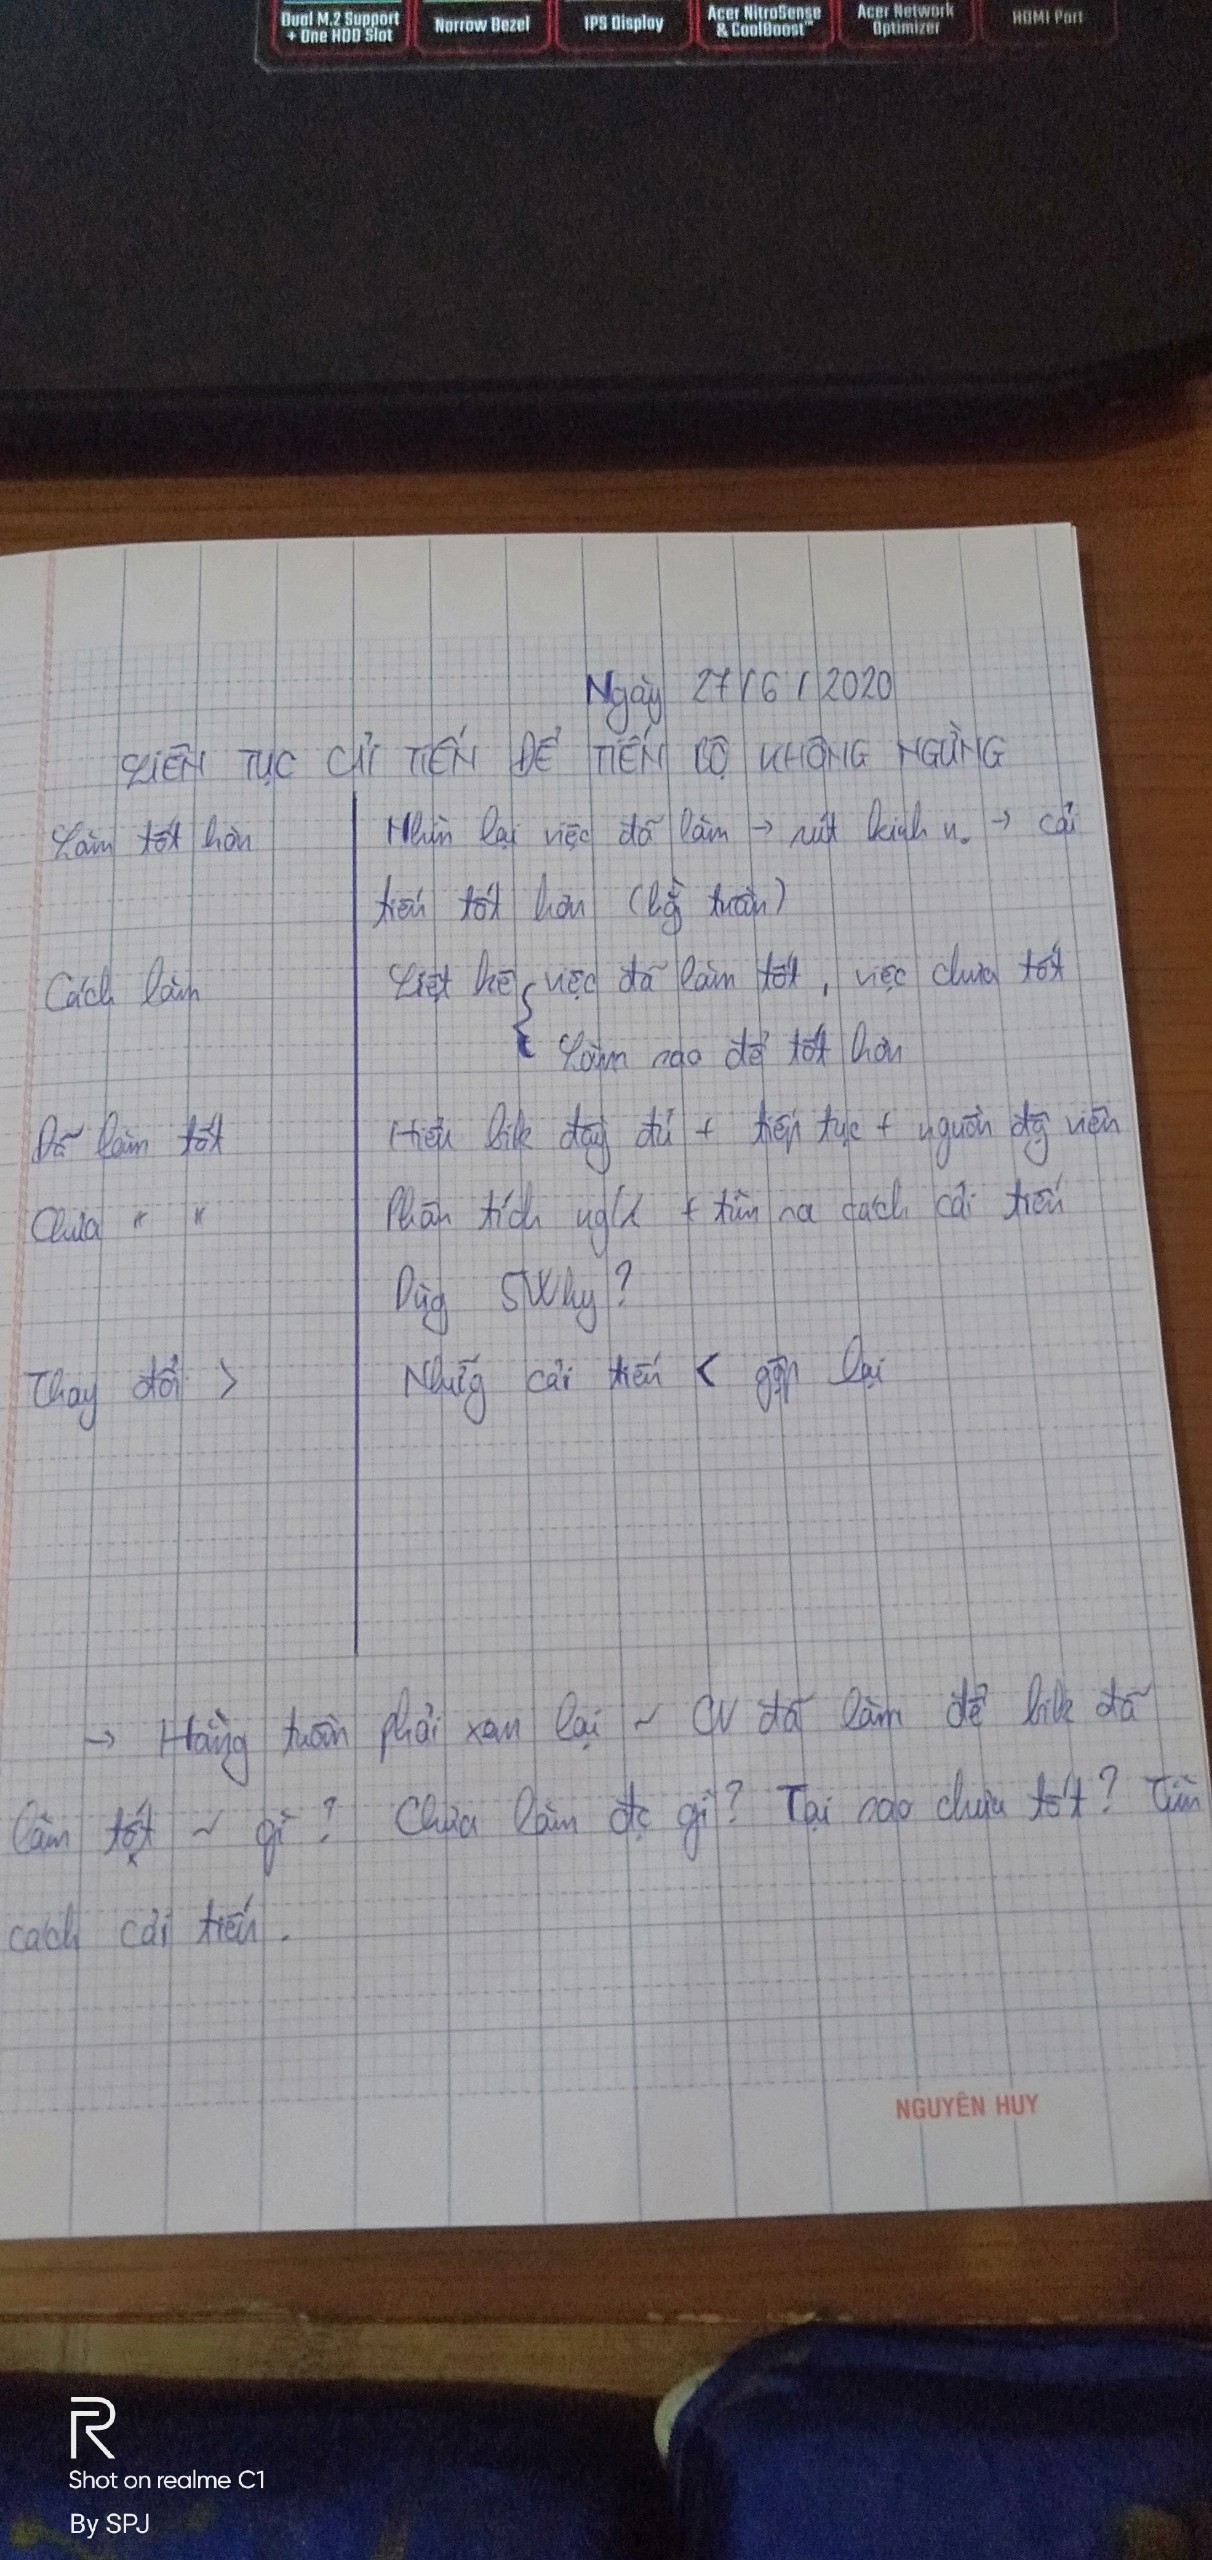 Dual M.2 Support
+ One HDD Slot
Narrow Bezel
IPS Display
Acer NitroSense
& CoolBoost™
Acer Network
Optimizer
HDMI Port
Ngày 27/6/2020
LIÊN TỤC CẢI TIẾN ĐỂ TIẾN BỘ KHÔNG NGỪNG
Làm tốt hơn
Nhìn lại việc đã làm → rút kinh n. → cải
tiến tốt hơn (hg̀ tuần)
Cách làm
Liệt kê { việc đã làm tốt, việc chưa tốt
Làm nào để tốt hơn
Đã làm tốt
Hiểu bik đầy đủ + tiếp tục + nguồn độg viên
Chưa " "
Phân tích ng + tìm ra cách cải tiến
Dùg 5Why?
Thay đổi >
Nhữg cải tiến < gộp lại
→ Hằng tuần phải xem lại ~ CV đã làm để bik đã
làm tốt ~ gì? Chưa làm đc gì? Tại sao chưa tốt? Tìm
cách cải tiến.
NGUYÊN HUY
R
Shot on realme C1
By SPJ